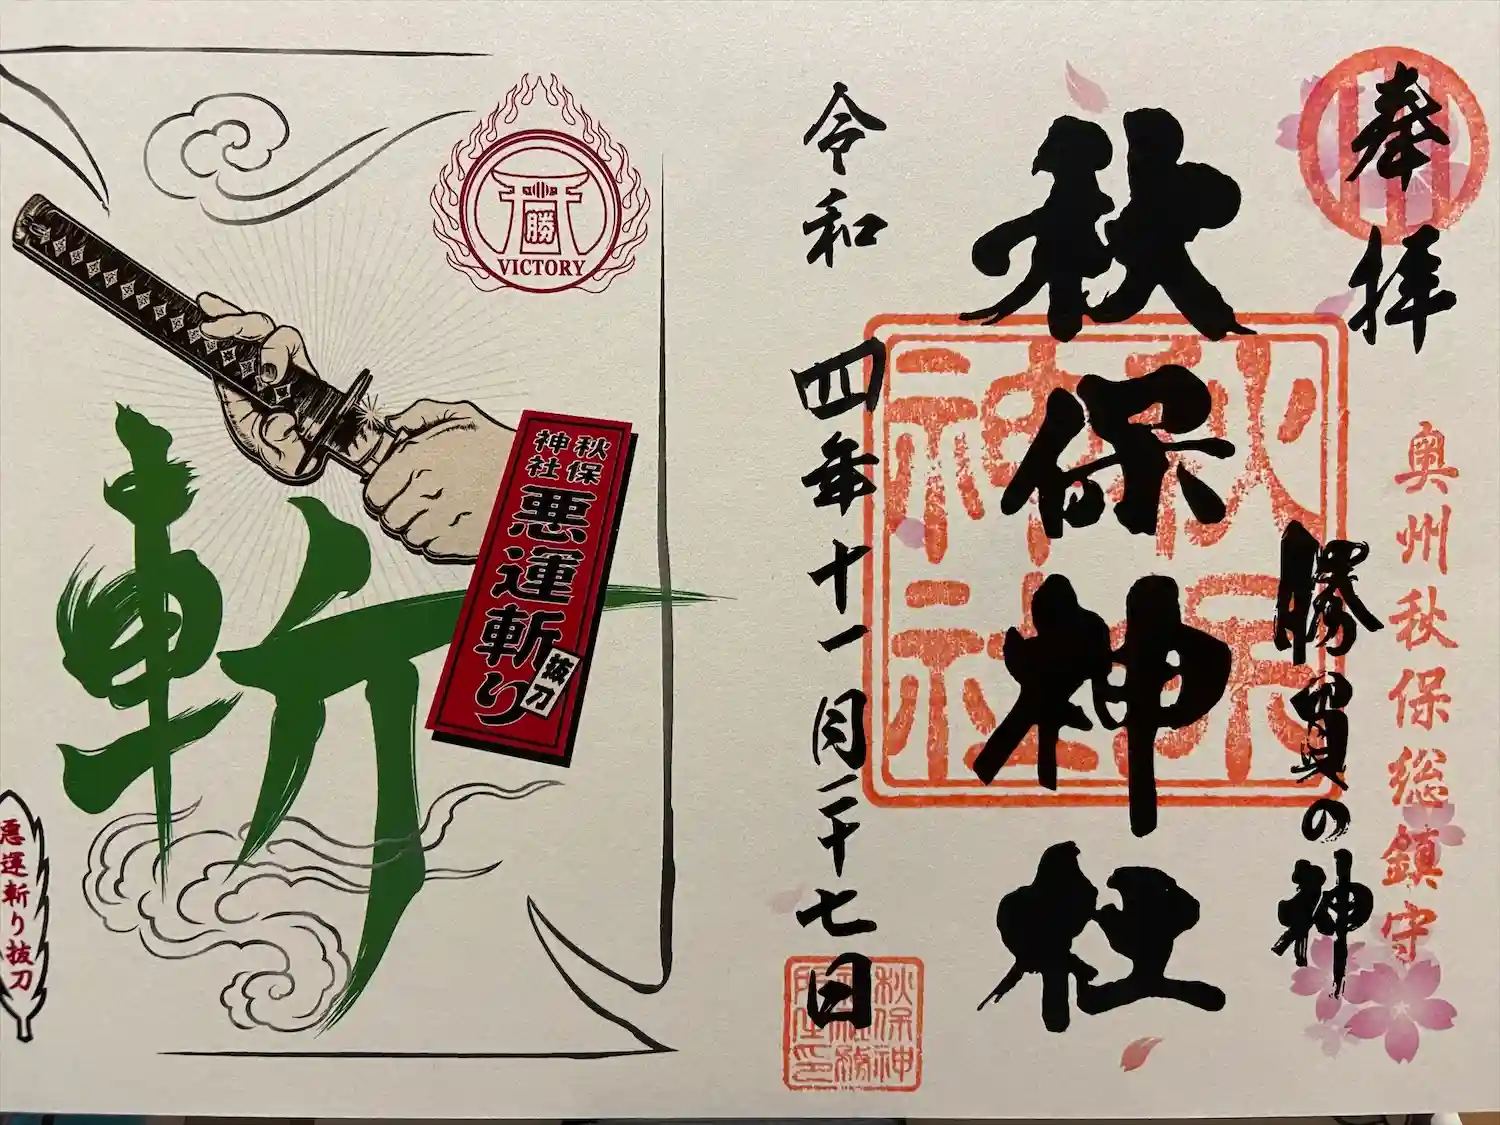 奉拝
奥州秋保総鎮守
勝負の神
秋保神社
秋保神社
令和四年十一月二十七日
秋保神社
勝
VICTORY
秋保神社
悪運斬り
抜刀
斬
悪運斬り抜刀